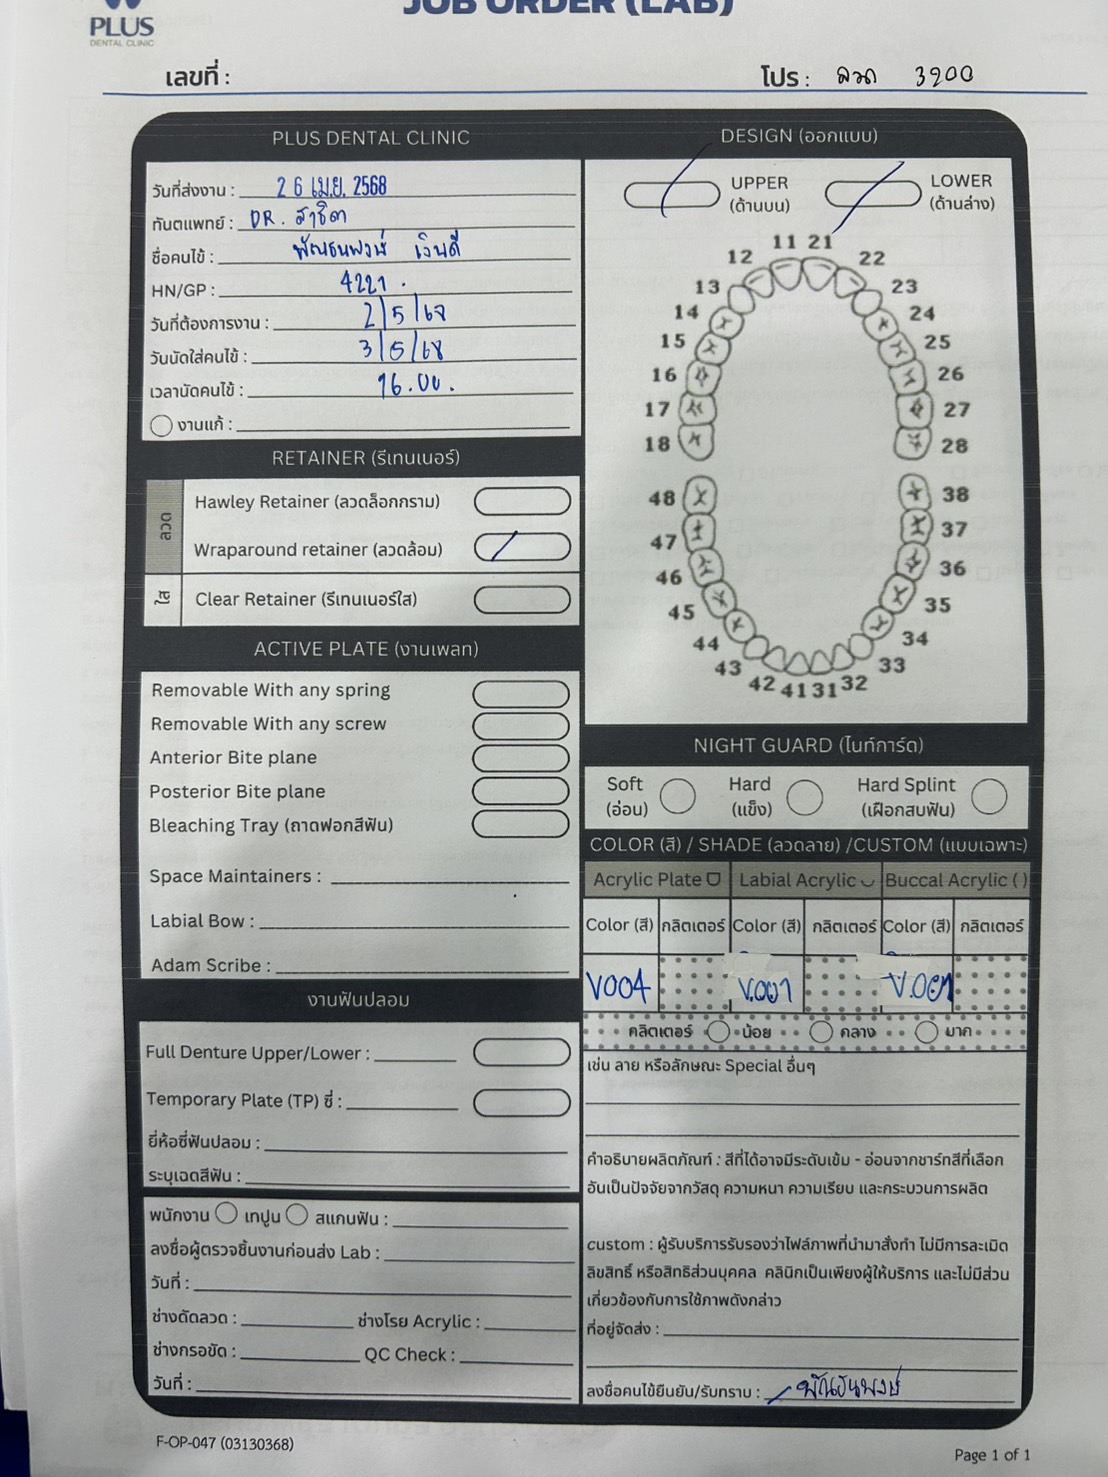 JOB ORDER (LAB)
PLUS
DENTAL CLINIC
เลขที่ :
โปร : ลวด 3900
PLUS DENTAL CLINIC
วันที่ส่งงาน : 26 เม.ย. 2568
ทันตแพทย์ : DR. สาธิตา
ชื่อคนไข้ : พัณธนพงษ์ เงินดี
HN/GP : 4221 .
วันที่ต้องการงาน : 2/5/68
วันนัดใส่คนไข้ : 3/5/68
เวลานัดคนไข้ : 16.00.
งานแก้ :
RETAINER (รีเทนเนอร์)
ลวด
Hawley Retainer (ลวดล็อกกราม)
Wraparound retainer (ลวดล้อม)
ใส
Clear Retainer (รีเทนเนอร์ใส)
ACTIVE PLATE (งานเพลท)
Removable With any spring
Removable With any screw
Anterior Bite plane
Posterior Bite plane
Bleaching Tray (ถาดฟอกสีฟัน)
Space Maintainers :
Labial Bow :
Adam Scribe :
งานฟันปลอม
Full Denture Upper/Lower :
Temporary Plate (TP) ซี่ :
ยี่ห้อซี่ฟันปลอม :
ระบุเฉดสีฟัน :
พนักงาน เทปูน สแกนฟัน :
ลงชื่อผู้ตรวจชิ้นงานก่อนส่ง Lab :
วันที่ :
ช่างดัดลวด : ช่างโรย Acrylic :
ช่างกรอขัด : QC Check :
วันที่ :
DESIGN (ออกแบบ)
UPPER
(ด้านบน)
LOWER
(ด้านล่าง)
11 21
12 22
13 23
14 24
15 25
16 26
17 27
18 28
48 38
47 37
46 36
45 35
44 34
43 33
42 41 31 32
NIGHT GUARD (ไนท์การ์ด)
Soft
(อ่อน)
Hard
(แข็ง)
Hard Splint
(เฝือกสบฟัน)
COLOR (สี) / SHADE (ลวดลาย) /CUSTOM (แบบเฉพาะ)
Acrylic Plate Labial Acrylic Buccal Acrylic ( )
Color (สี) กลิตเตอร์ Color (สี) กลิตเตอร์ Color (สี) กลิตเตอร์
V004 V.001 V.001
คลิตเตอร์ น้อย กลาง มาก
เช่น ลาย หรือลักษณะ Special อื่นๆ
คำอธิบายผลิตภัณฑ์ : สีที่ได้อาจมีระดับเข้ม - อ่อนจากชาร์ทสีที่เลือก
อันเป็นปัจจัยจากวัสดุ ความหนา ความเรียบ และกระบวนการผลิต
custom : ผู้รับบริการรับรองว่าไฟล์ภาพที่นำมาสั่งทำ ไม่มีการละเมิด
ลิขสิทธิ์ หรือสิทธิส่วนบุคคล คลินิกเป็นเพียงผู้ให้บริการ และไม่มีส่วน
เกี่ยวข้องกับการใช้ภาพดังกล่าว
ที่อยู่จัดส่ง :
ลงชื่อคนไข้ยืนยัน/รับทราบ : พัณธนพงษ์
F-OP-047 (03130368)
Page 1 of 1